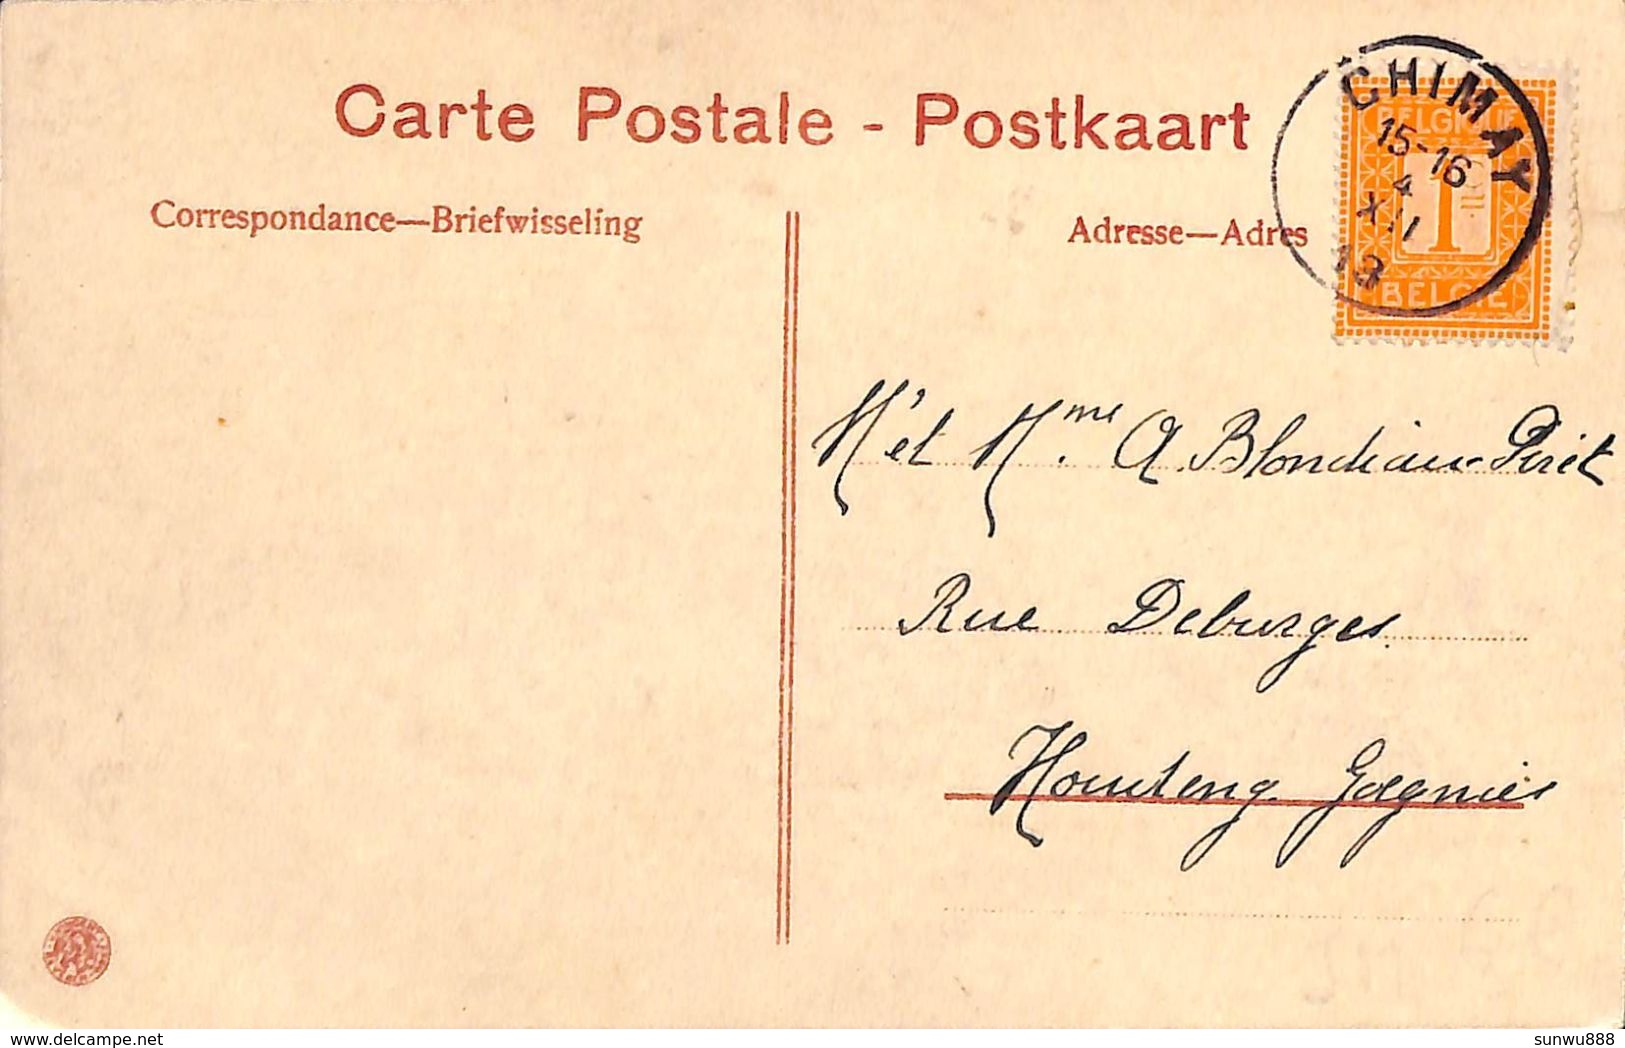 Carte Postale - Postkaart
Correspondance—Briefwisseling
Adresse—Adres
CHIMAY
15-16
4
XII
13
BELGIQUE
1
BELGIË
Mr et Mme A. Blondiau-Piret
Rue Deburges
Houdeng Goegnies
delcampe.net
sunwu888